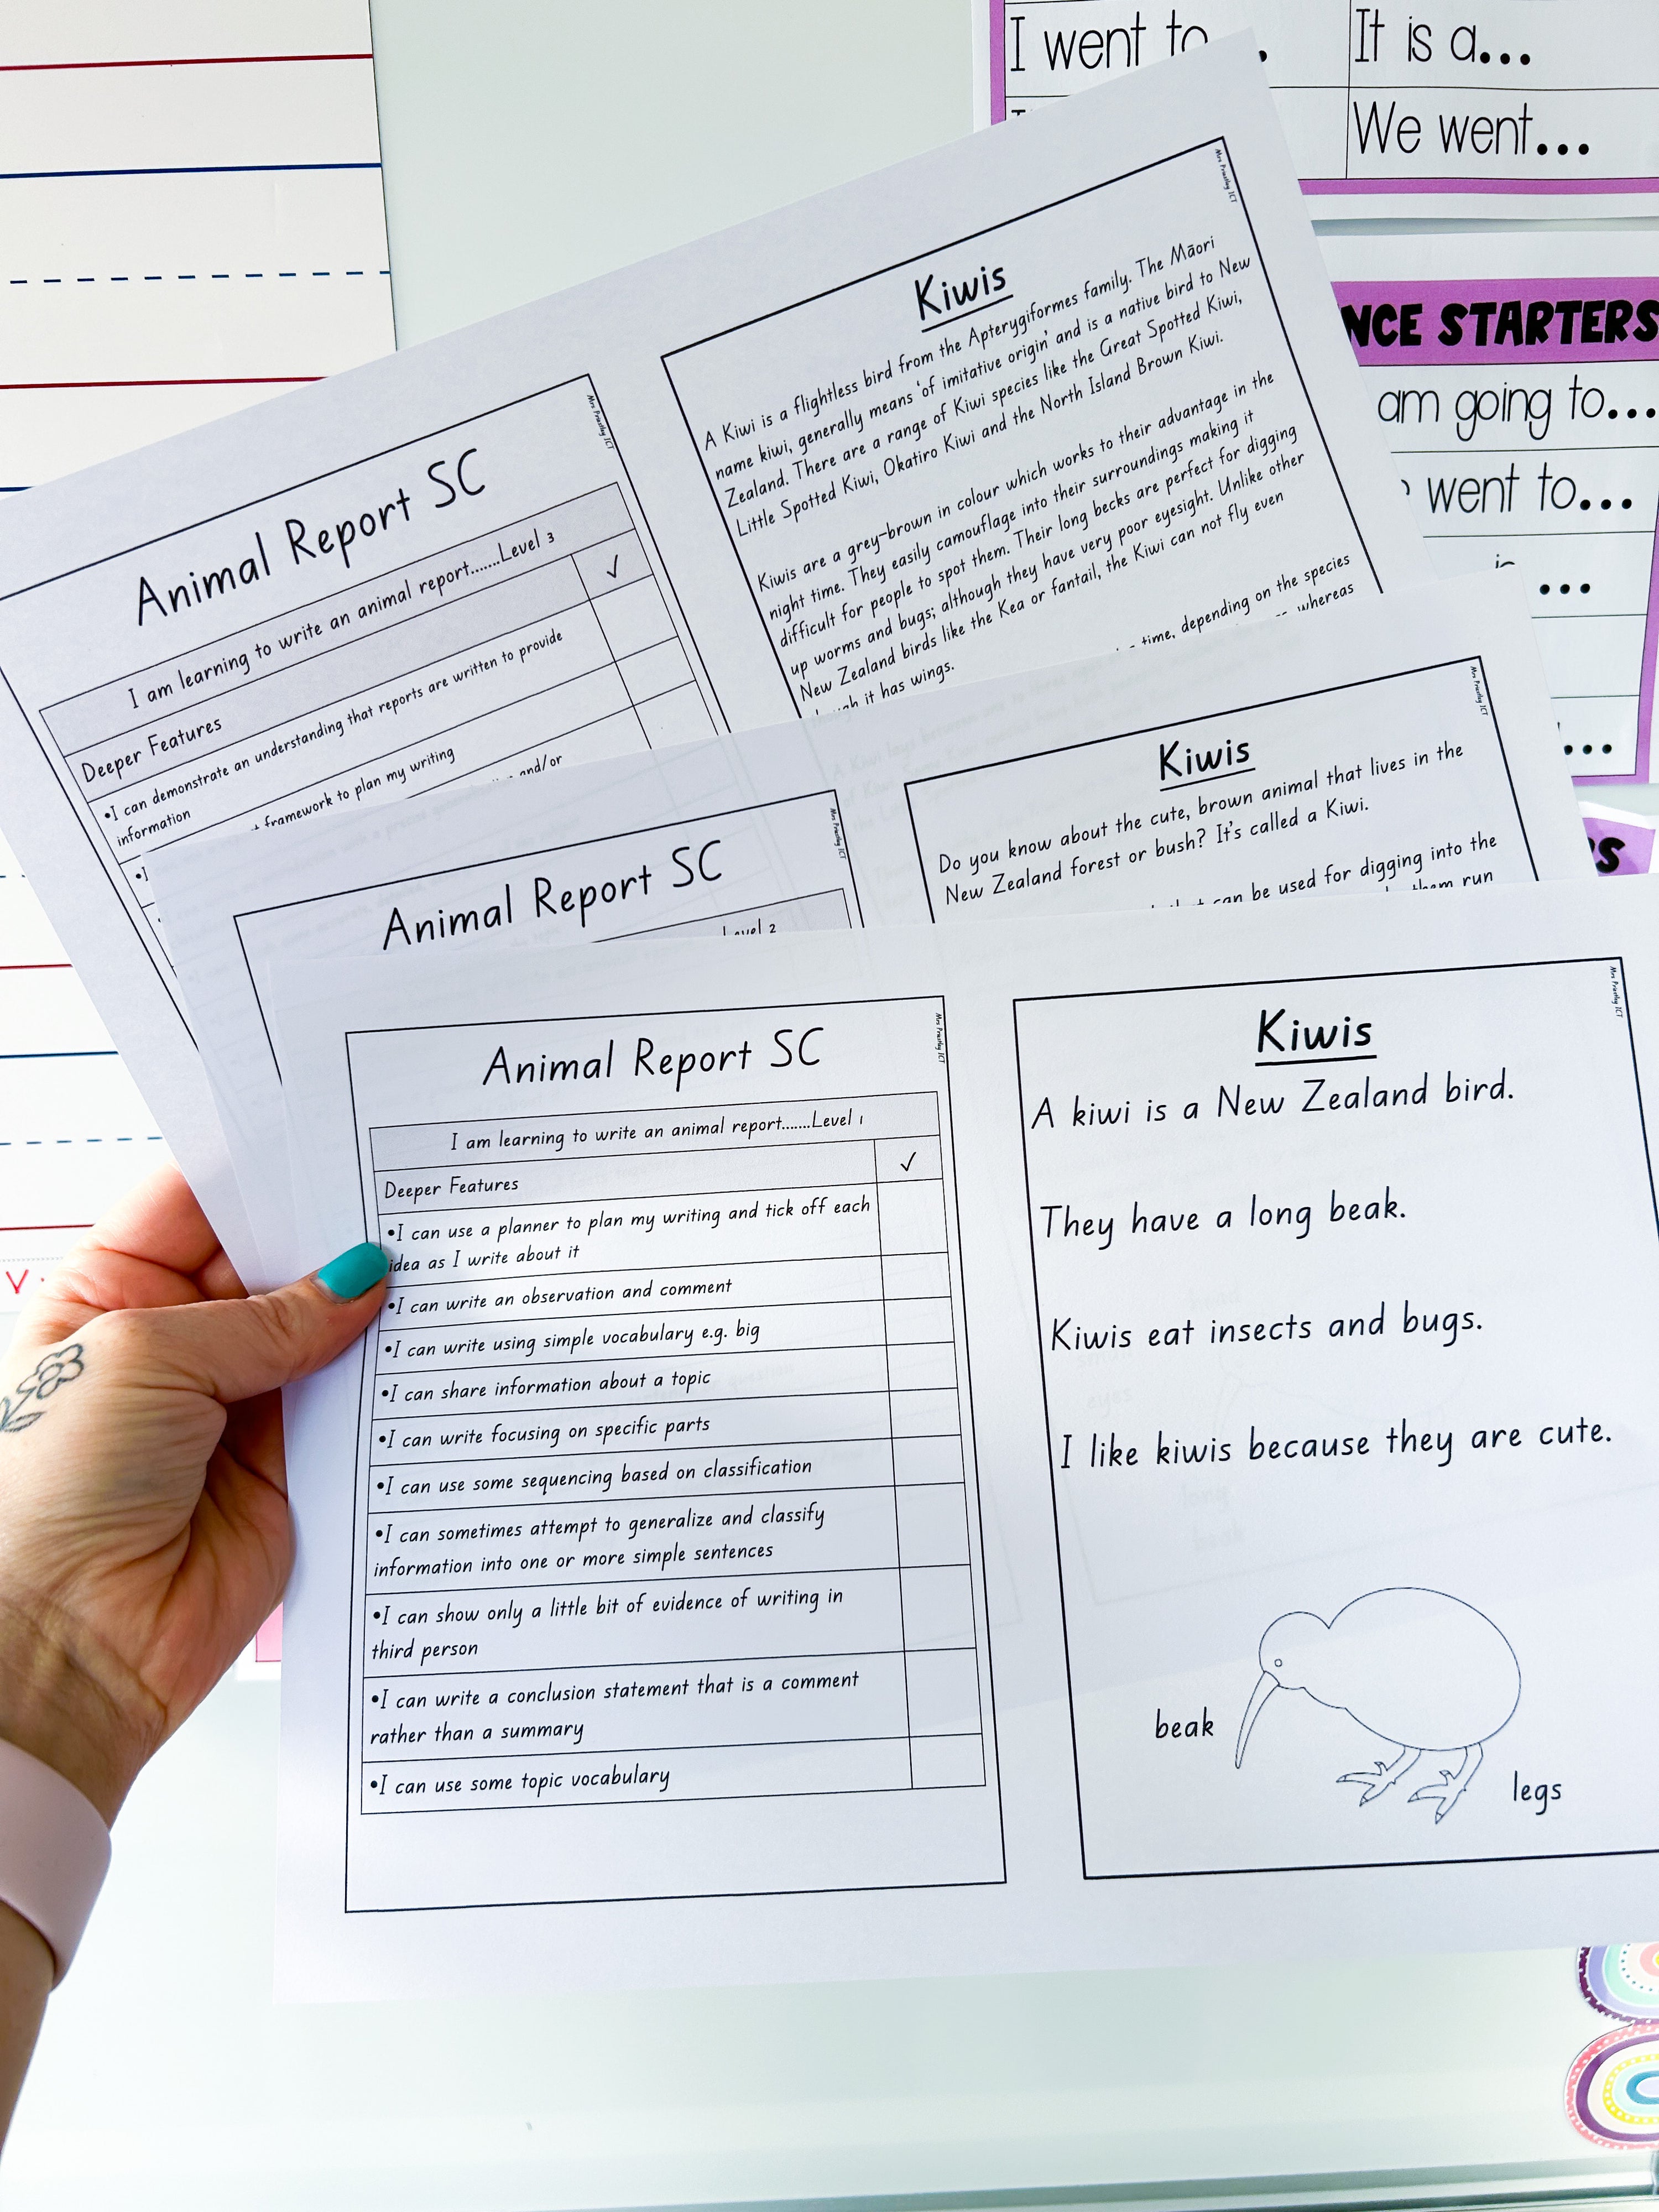 I went to
It is a...
We went...
NCE STARTERS
am going to...
went to...
...
...
Mrs Priestley ICT
Kiwis
A Kiwi is a flightless bird from the Apterygiformes family. The Māori
name kiwi, generally means 'of imitative origin' and is a native bird to New
Zealand. There are a range of Kiwi species like the Great Spotted Kiwi,
Little Spotted Kiwi, Okatiro Kiwi and the North Island Brown Kiwi.
Kiwis are a grey-brown in colour which works to their advantage in the
night time. They easily camouflage into their surroundings making it
difficult for people to spot them. Their long becks are perfect for digging
up worms and bugs; although they have very poor eyesight. Unlike other
New Zealand birds like the Kea or fantail, the Kiwi can not fly even
it has wings.
time, depending on the species
whereas
Mrs Priestley ICT
Animal Report SC
I am learning to write an animal report.......Level 3
Deeper Features ✓
•I can demonstrate an understanding that reports are written to provide
information
framework to plan my writing
and/or
Mrs Priestley ICT
Animal Report SC
Level 2
Mrs Priestley ICT
Kiwis
Do you know about the cute, brown animal that lives in the
New Zealand forest or bush? It's called a Kiwi.
that can be used for digging into the
them run
Mrs Priestley ICT
Animal Report SC
I am learning to write an animal report.......Level 1
Deeper Features ✓
•I can use a planner to plan my writing and tick off each
idea as I write about it
•I can write an observation and comment
•I can write using simple vocabulary e.g. big
•I can share information about a topic
•I can write focusing on specific parts
•I can use some sequencing based on classification
•I can sometimes attempt to generalize and classify
information into one or more simple sentences
•I can show only a little bit of evidence of writing in
third person
•I can write a conclusion statement that is a comment
rather than a summary
•I can use some topic vocabulary
Mrs Priestley ICT
Kiwis
A kiwi is a New Zealand bird.
They have a long beak.
Kiwis eat insects and bugs.
I like kiwis because they are cute.
beak
legs